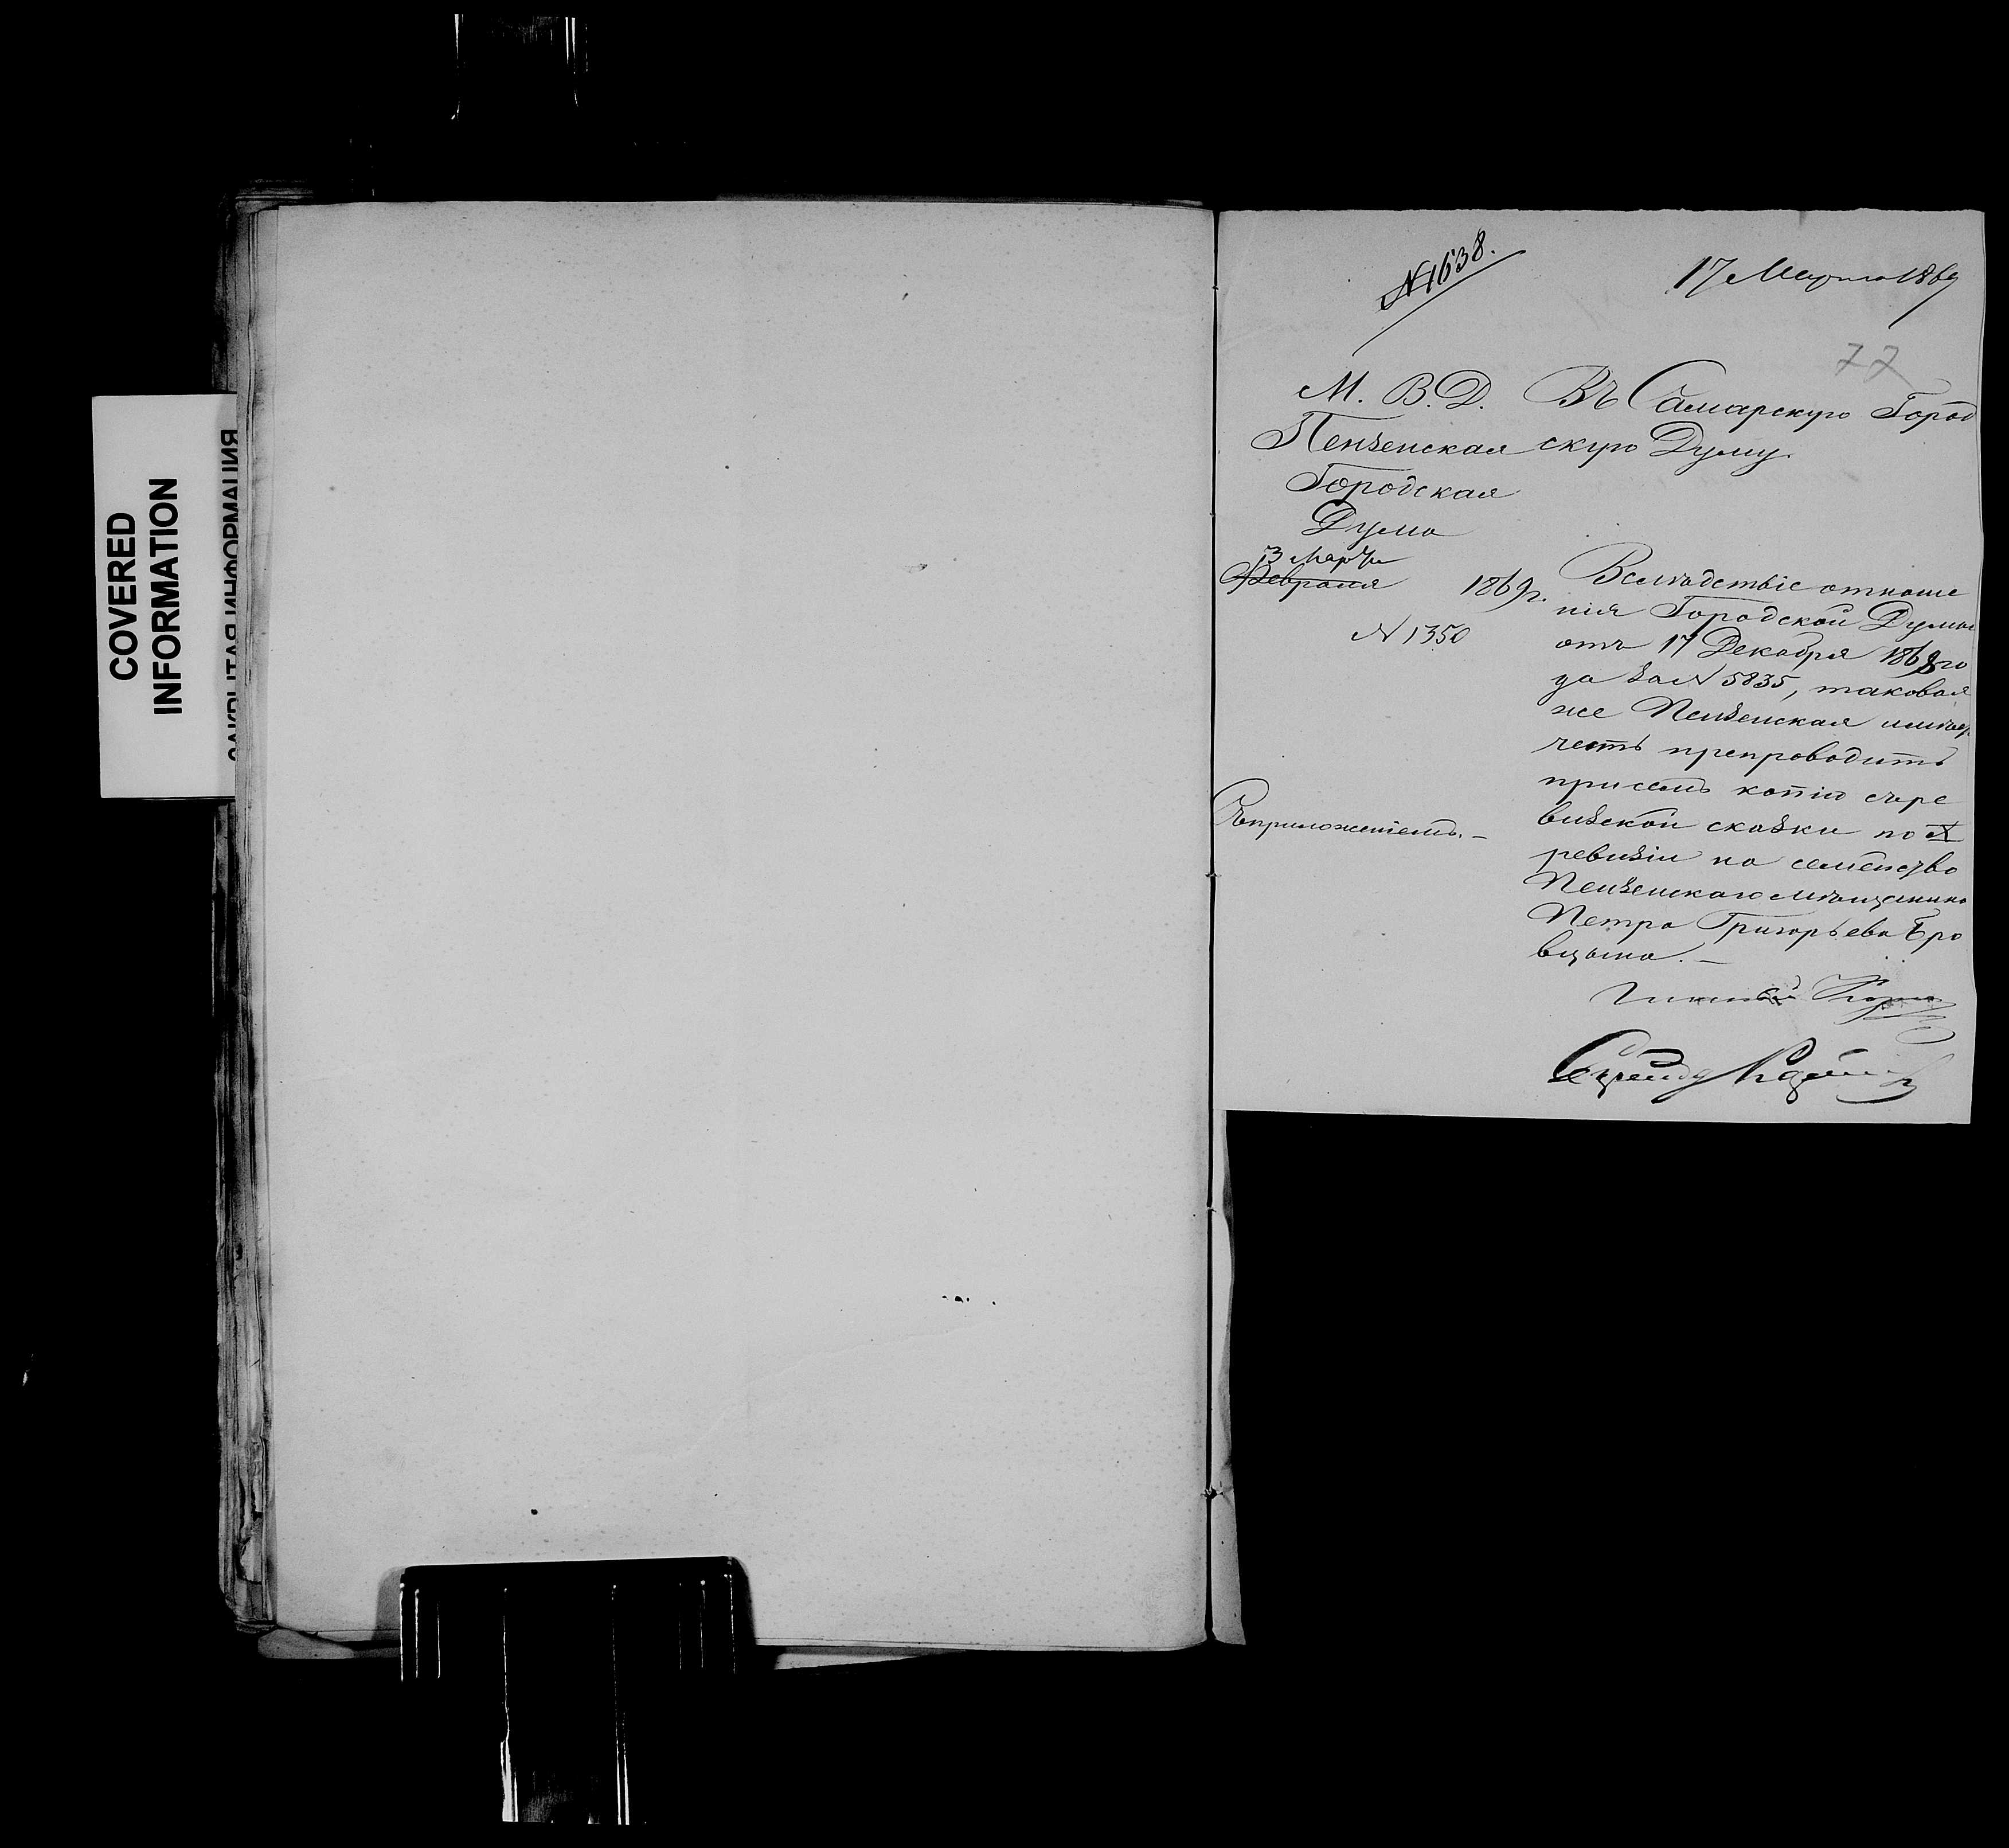 COVERED
INFORMATION
ЗАКРЫТАЯ ИНФОРМАЦИЯ
№1638.
17 Марта 1869
77
М. В. Д.
Пензенская
Городская
Дума
13 Марта
Февраля 1869г.
№ 1350
Съ приложеніемъ.–
Въ Самарскую Город
скую Думу.
Вслѣдствіе отноше
нія Городской Думы
отъ 17 Декабря 1868 го
да за № 5835, таковая
же Пензенская имѣетъ
честь препроводить
при семъ копію съ ре
визской сказки по X
ревизіи на семейство
Пензенскаго мѣщанина
Петра Григорьева Бро
вцына.–